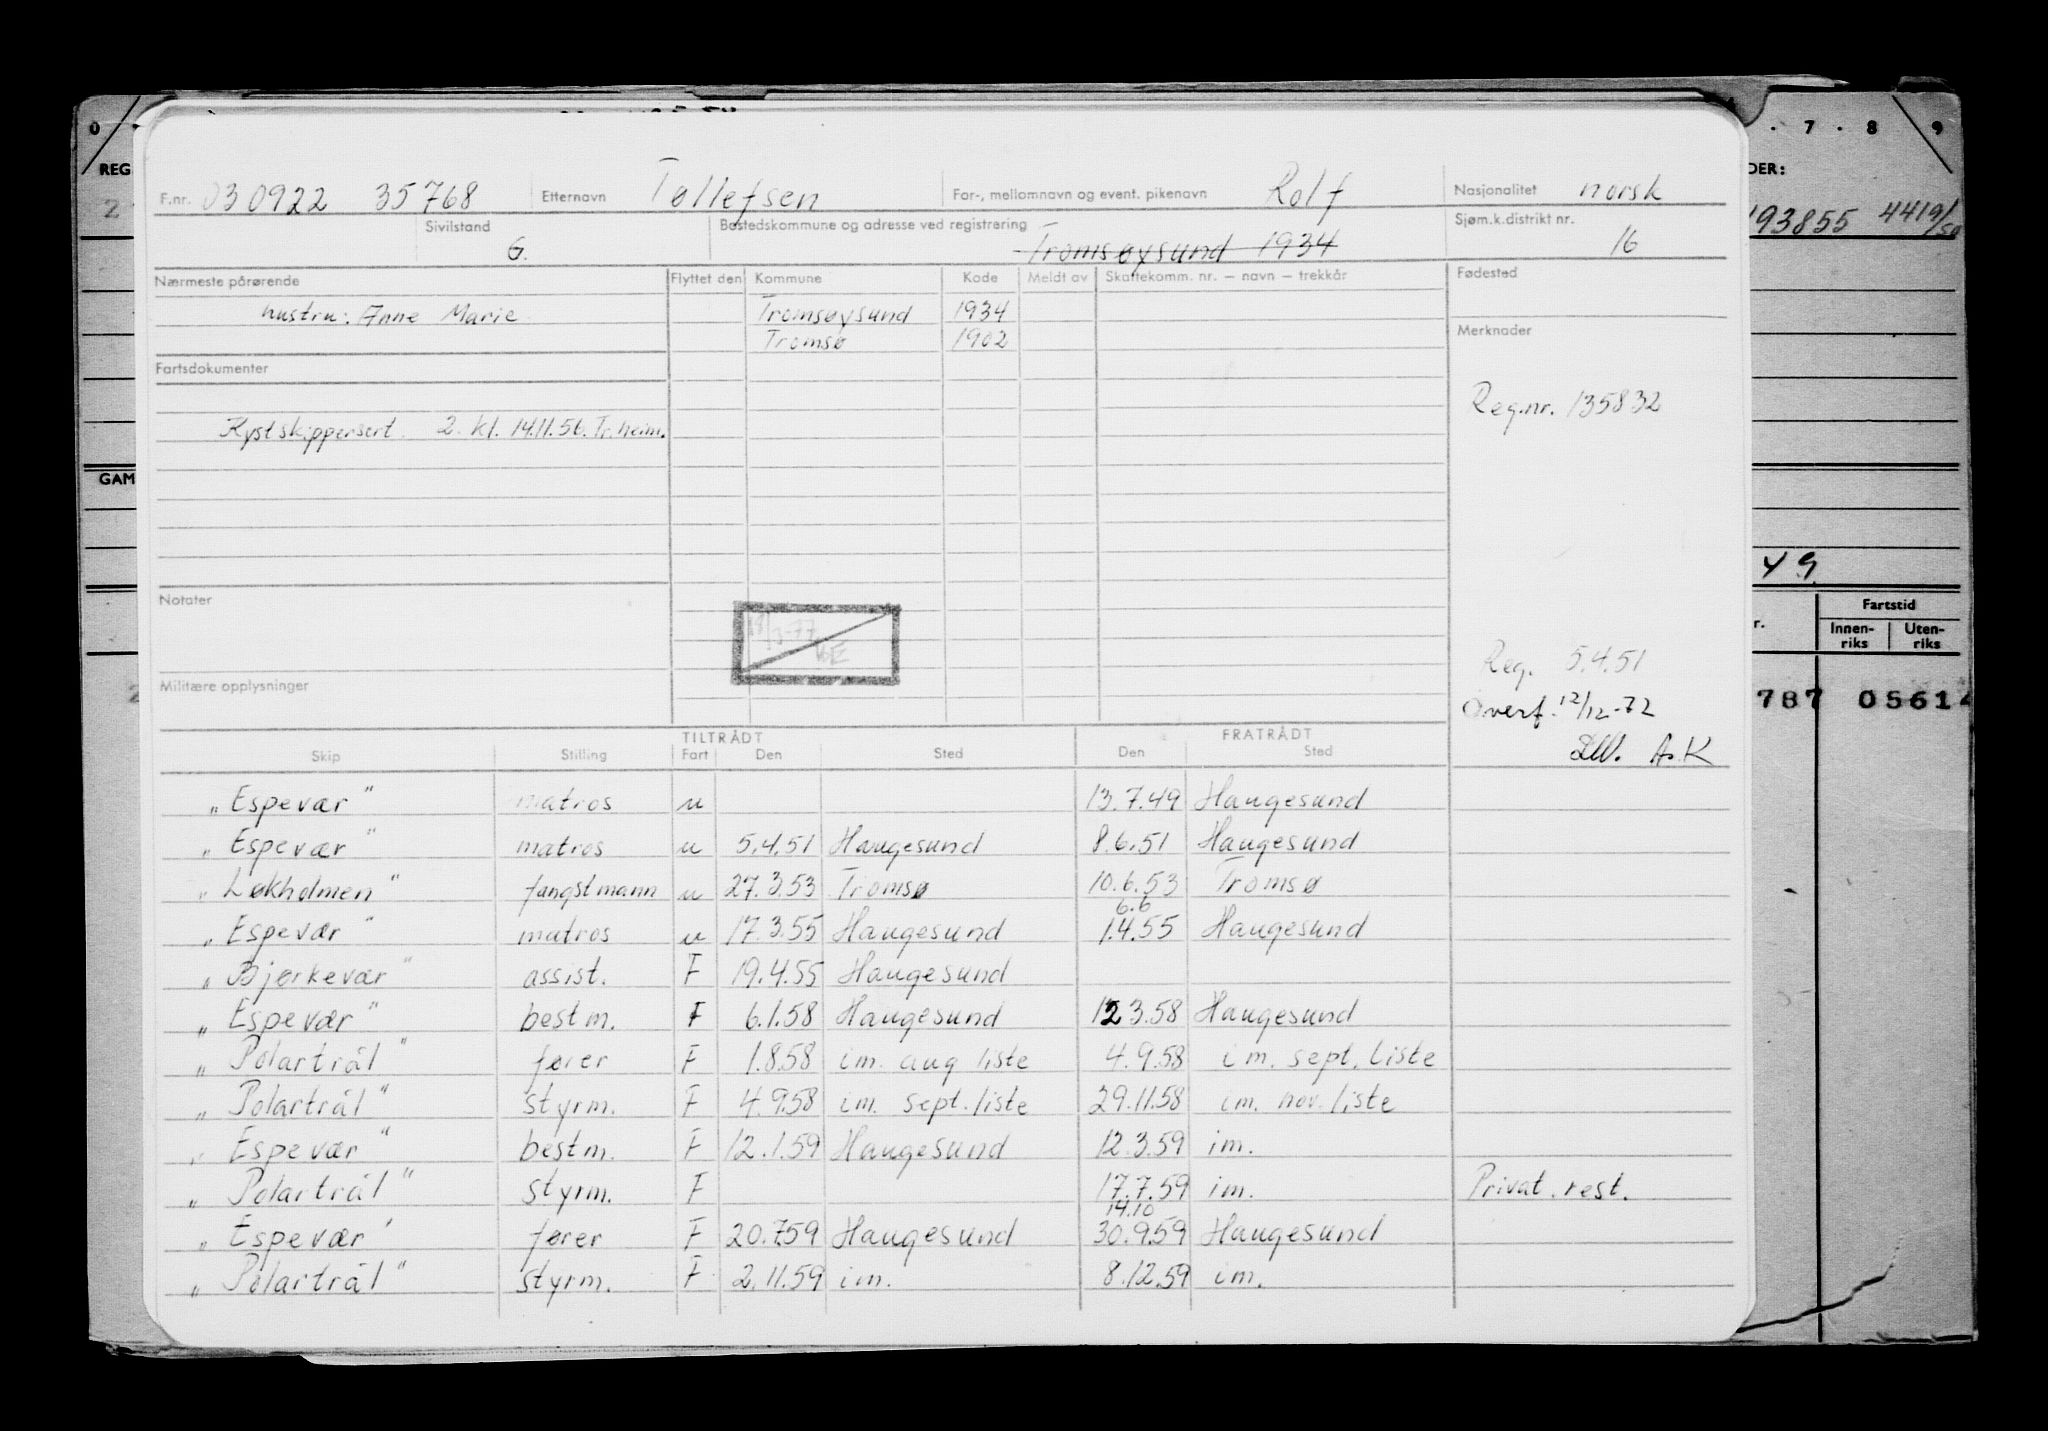 0 · 7 · 8 9
REG DER:
F.nr. 030922 35768 Etternavn Tollefsen For-, mellomnavn og event. pikenavn Rolf Nasjonalitet norsk
193855 4419/50
Sivilstand G. Bostedskommune og adresse ved registrering Tromsøysund 1934 Sjøm.k.distrikt nr. 16
Nærmeste pårørende Flyttet den Kommune Kode Meldt av Skattekomm. nr. – navn – trekkår Fødested
hustru: Anne Marie Tromsøysund 1934
Tromsø 1902 Merknader
Fartsdokumenter
Reg.nr. 135832
Kystskippersert. 2. kl. 14.11.56. Tr.heim.
GAM
49
Notater
Fartstid
r. Innenriks Utenriks
18/3-77
Reg. 5.4.51
Militære opplysninger
787 05614
Overf. 12/12-72
TILTRÅDT FRATRÅDT
Skip Stilling Fart Den Sted Den Sted
A.K
"Espevær" matros u 13.7.49 Haugesund
"Espevær" matros u 5.4.51 Haugesund 8.6.51 Haugesund
"Løkholmen" fangstmann u 27.3.53 Tromsø 10.6.53 Tromsø
6.6
"Espevær" matros u 17.3.55 Haugesund 1.4.55 Haugesund
"Bjerkevær" assist. F 19.4.55 Haugesund
"Espevær" bestm. F 6.1.58 Haugesund 12 3.58 Haugesund
"Polartrål" fører F 1.8.58 im. aug liste 4.9.58 im. sept. liste
"Polartrål" styrm. F 4.9.58 im. sept. liste 29.11.58 im. nov. liste
"Espevær" bestm. F 12.1.59 Haugesund 12.3.59 im.
"Polartrål" styrm. F 17.7.59 im. Privat. rest.
14.10
"Espevær" fører F 20.7.59 Haugesund 30.9.59 Haugesund
"Polartrål" styrm. F 2.11.59 im. 8.12.59 im.